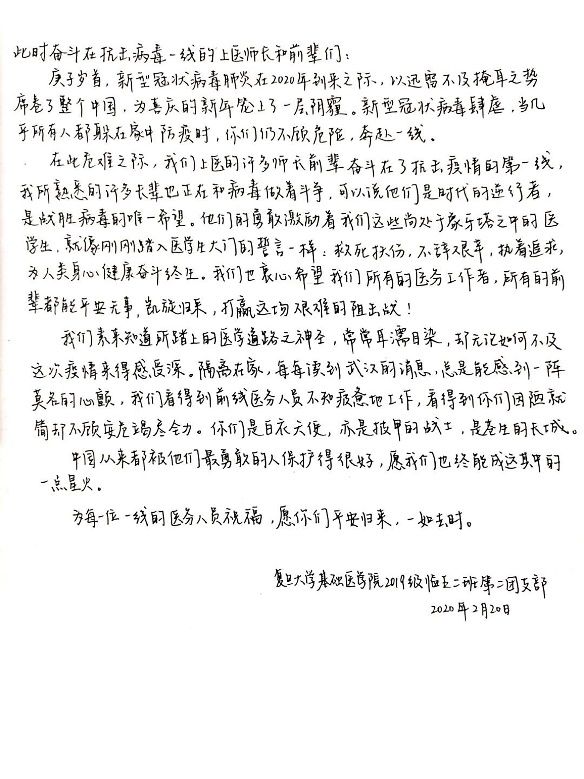 此时奋斗在抗击病毒一线的上医师长和前辈们：
庚子岁首，新型冠状病毒肺炎在2020年到来之际，以迅雷不及掩耳之势
席卷了整个中国，为喜庆的新年笼上了一层阴霾。新型冠状病毒肆虐，当几
乎所有人都躲在家中防疫时，你们仍不顾危险，奔赴一线。
在此危难之际，我们上医的许多师长前辈奋斗在了抗击疫情的第一线，
我所熟悉的许多长辈也正在和病毒做着斗争，可以说他们是时代的逆行者，
是战胜病毒的唯一希望。他们的勇敢激励着我们这些尚处于象牙塔之中的医
学生，就像刚刚踏入医学生大门的誓言一样：救死扶伤，不辞艰辛，执着追求，
为人类身心健康奋斗终生。我们也衷心希望我们所有的医务工作者，所有的前
辈都能平安无事，凯旋归来，打赢这场艰难的阻击战！
我们素来知道所踏上的医学道路之神圣，常常耳濡目染，却无论如何不及
这次疫情来得感受深。隔离在家，每每读到武汉的消息，总是能感到一阵
莫名的心颤，我们看得到前线医务人员不知疲惫地工作，看得到你们因陋就
简却不顾安危竭尽全力。你们是白衣天使，亦是披甲的战士，是苍生的长城。
中国从来都被他们最勇敢的人保护得很好，愿我们也终能成这其中的
一点星火。
为每一位一线的医务人员祝福，愿你们平安归来，一如去时。
复旦大学基础医学院2019级临五二班第二团支部
2020年2月20日